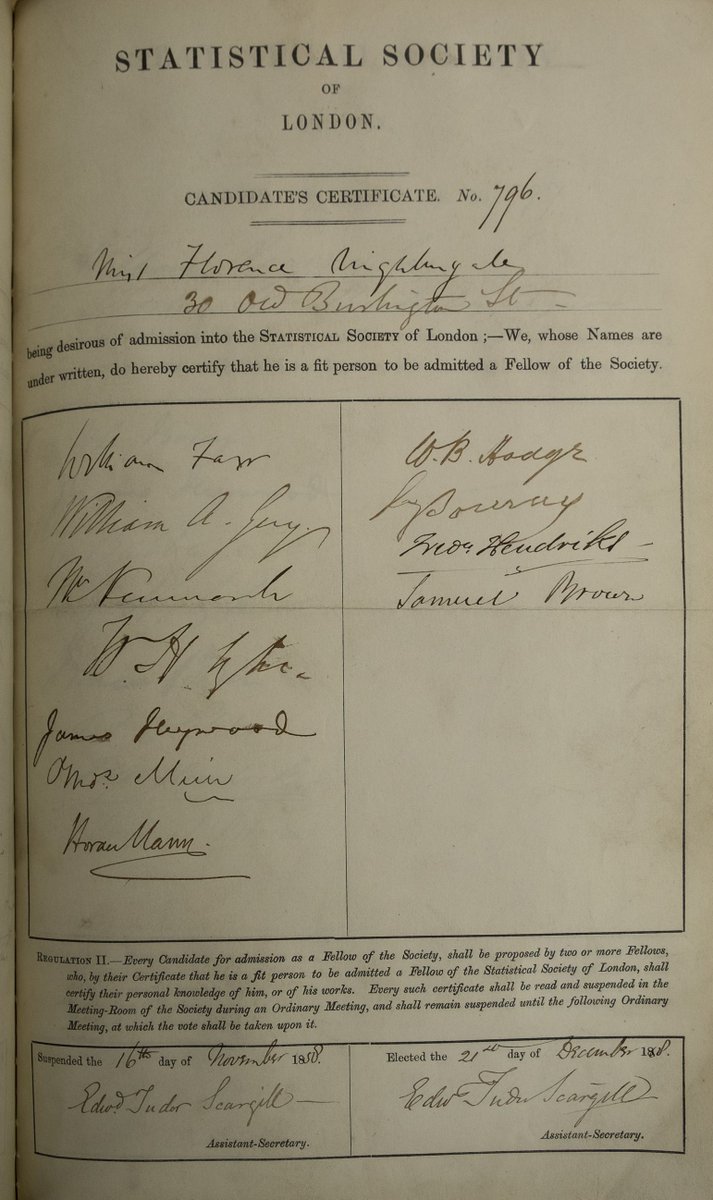 STATISTICAL SOCIETY
OF
LONDON.
CANDIDATE'S CERTIFICATE. No. 796.
Miss Florence Nightingale
30 Old Burlington St
being desirous of admission into the STATISTICAL SOCIETY of London ;—We, whose Names are
under written, do hereby certify that he is a fit person to be admitted a Fellow of the Society.
William Farr
William A. Guy.
Wm Newmarch
W. H.
James Heywood
Thos. Muir
Horace Mann.
W. B. Hodge
Fredk Hendriks
Samuel Brown
REGULATION II.—Every Candidate for admission as a Fellow of the Society, shall be proposed by two or more Fellows,
who, by their Certificate that he is a fit person to be admitted a Fellow of the Statistical Society of London, shall
certify their personal knowledge of him, or of his works. Every such certificate shall be read and suspended in the
Meeting-Room of the Society during an Ordinary Meeting, and shall remain suspended until the following Ordinary
Meeting, at which the vote shall be taken upon it.
Suspended the 16th day of November 1858.
Edwd. Tudor Scargill
Assistant-Secretary.
Elected the 21st day of December 1858.
Edwd Tudor Scargill
Assistant-Secretary.